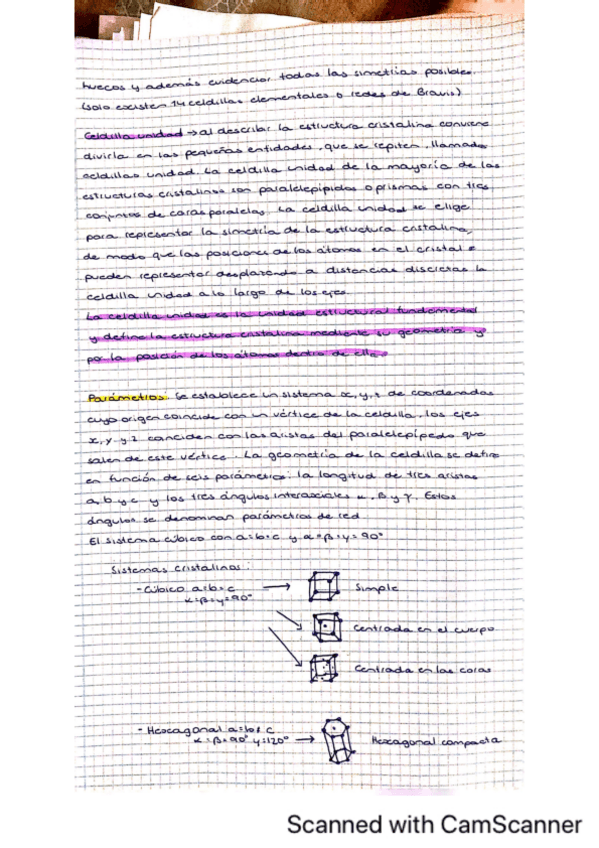 huecos y además evidenciar todas las simetrías posibles.
(solo existen 14 celdillas elementales o redes de Bravis)
Celdilla unidad → al describir la estructura cristalina conviene
divirla en las pequeñas entidades, que se repiten, llamadas
celdillas unidad. La celdilla unidad de la mayoría de las
estructuras cristalinas son paralelepípidos o prismas con tres
conjuntos de caras paralelas. La celdilla unidad se elige
para representar la simetría de la estructura cristalina,
de modo que las posiciones de los átomos en el cristal se
pueden representar desplazando a distancias discretas la
celdilla unidad a lo largo de los ejes.
La celdilla unidad es la unidad estructural fundamental
y define la estructura cristalina mediante su geometría y
por la posición de los átomos dentro de ella.
Parámetros: Se establece un sistema x, y, z de coordenadas
cuyo origen coincide con un vértice de la celdilla, los ejes
x, y y z coinciden con las aristas del paralelepípedo que
salen de este vértice. La geometría de la celdilla se define
en función de seis parámetros: la longitud de tres aristas
a, b y c y los tres ángulos interaxiales α, β y γ. Estos
ángulos se denominan parámetros de red.
El sistema cúbico con a=b=c y α=β=γ=90°
Sistemas cristalinos:
- Cúbico a=b=c → Simple
α=β=γ=90°
Centrada en el cuerpo
Centrada en las caras
- Hexagonal a=b≠c
α=β=90° γ=120° → Hexagonal compacta
Scanned with CamScanner